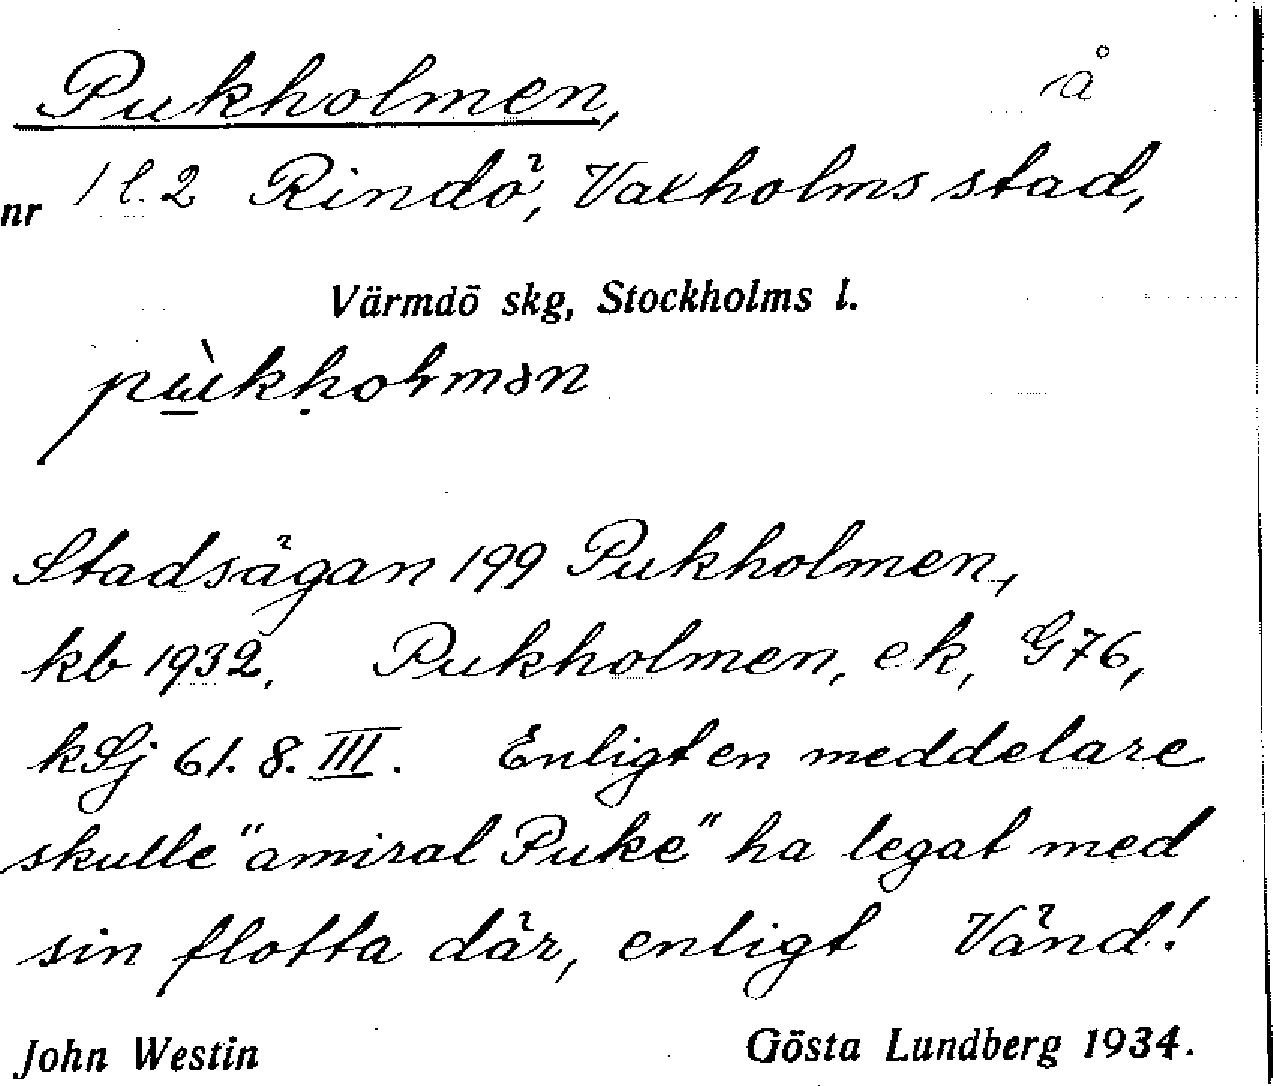 Pukholmen, å
nr 1 l. 2 Rindö, Vaxholms stad,
Värmdö skg, Stockholms l.
Stadsägan 199 Pukholmen,
kb 1932. Pukholmen, ek, G76,
kSj 61. 8. III. Enligt en meddelare
skulle "amiral Puke" ha legat med
sin flotta där, enligt Vänd!
John Westin Gösta Lundberg 1934.